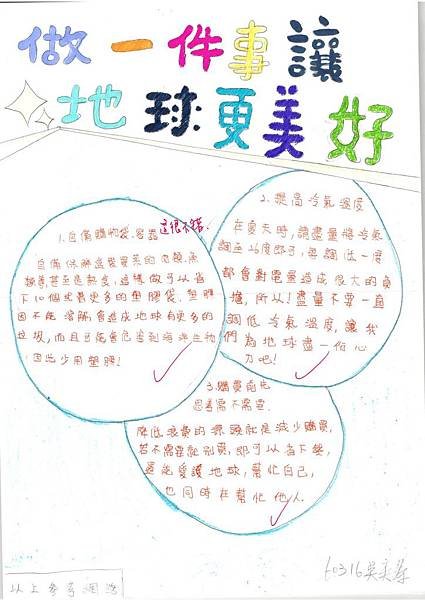 做一件事讓
地球更美好
1.自備購物袋、容器 這很不錯
自備保鮮盒裝買菜的肉類、魚
類甚至是熟食,這樣做可以省
下10個或是更多的塑膠袋,塑膠
因不能溶解會造成地球有更多的
垃圾,而且可能會危害到海洋生物
因此少用塑膠!
2.提高冷氣溫度
在夏天時,請盡量將冷氣
調至26度即可,每調低一度
都會對電量造成很大的負
擔,所以!盡量不要一直
調低冷氣溫度,讓我
們為地球盡一份心
力吧!
3.購買前先
思考需不需要
降低浪費的源頭就是減少購買,
若不需要就別買,即可以省下錢,
還能愛護地球,幫忙自己,
也同時在幫忙他人.
以上參考網路
60316吳